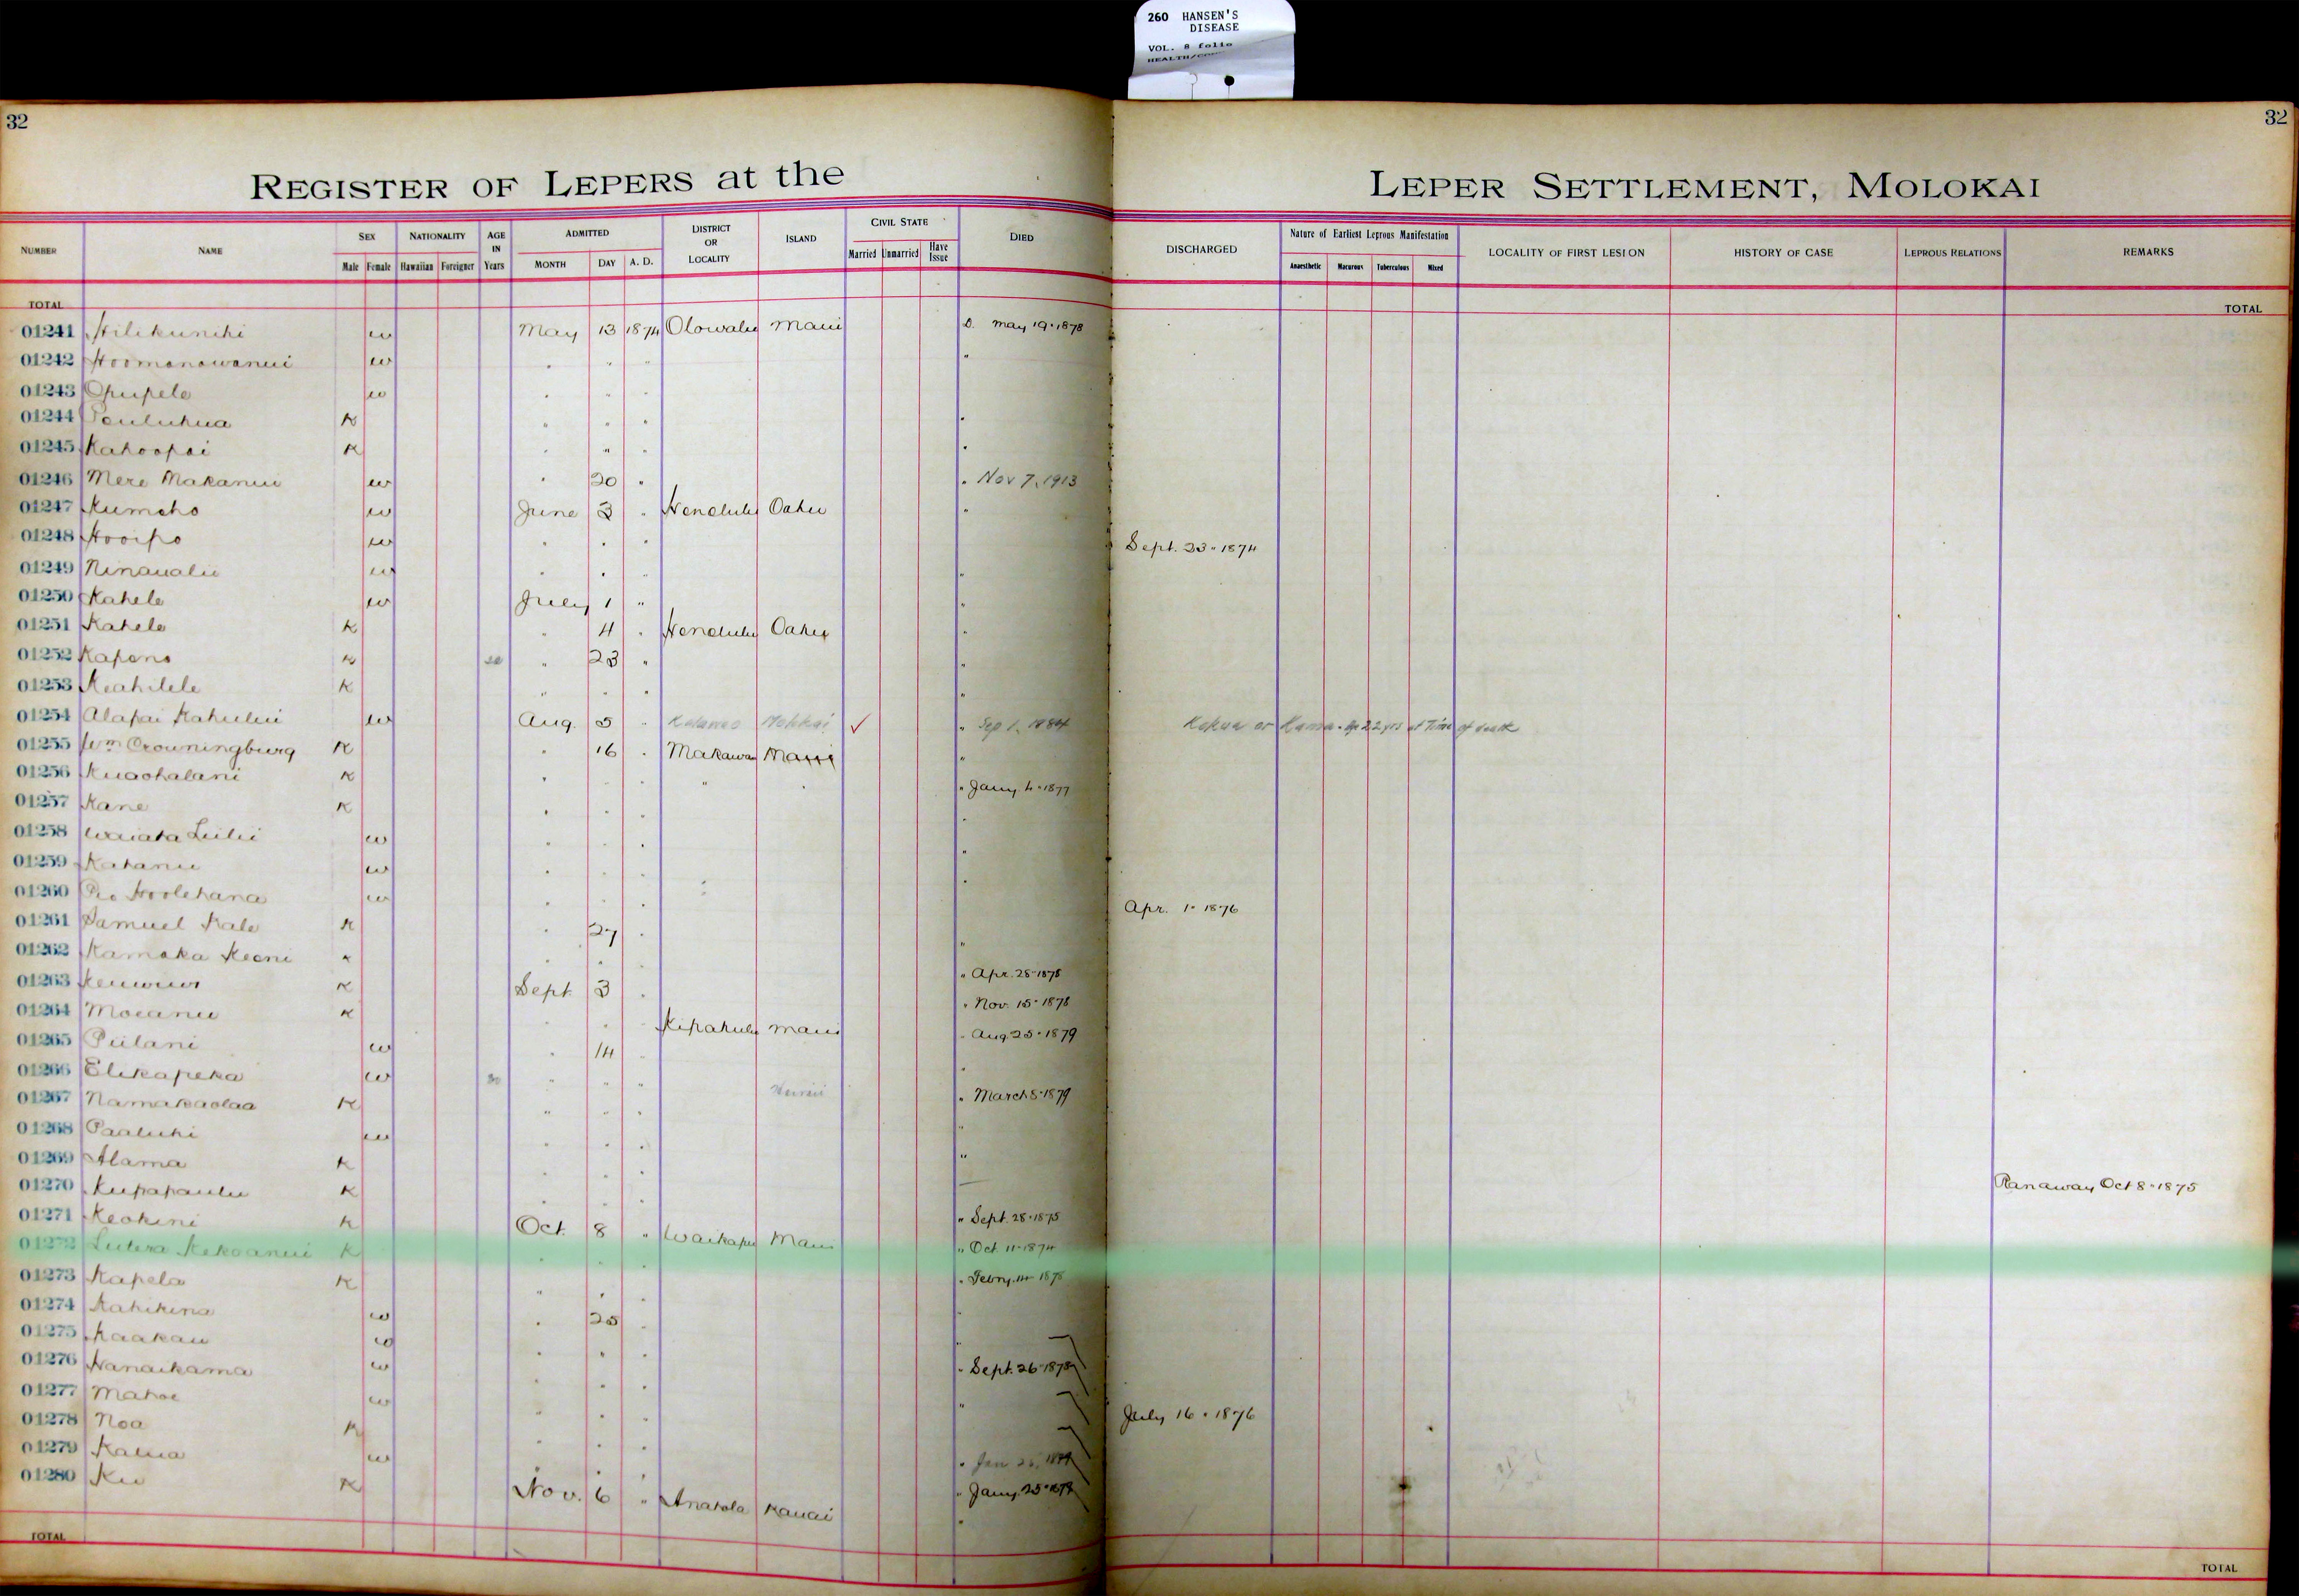 260 HANSEN'S
DISEASE
VOL. 8 folio
32 32
REGISTER OF LEPERS at the LEPER SETTLEMENT, MOLOKAI
NUMBER NAME SEX NATIONALITY AGE IN Years ADMITTED DISTRICT OR LOCALITY ISLAND CIVIL STATE DIED DISCHARGED Nature of Earliest Leprous Manifestation LOCALITY OF FIRST LESION HISTORY OF CASE LEPROUS RELATIONS REMARKS
Male Female Hawaiian Foreigner MONTH DAY A. D. Married Unmarried Have Issue Anaesthetic Macurous Tuberculous Mixed
TOTAL TOTAL
01241 Hilikunihi w May 13 1874 Olowalu Maui D. May 19 - 1878
01242 Hoomanawanui w " " " "
01243 Opupele w " " "
01244 Pauluhua K " " " "
01245 Kahoopai K " " " "
01246 Mere Makanui w " 20 " " Nov 7, 1913
01247 Kumeho w June 3 " Honolulu Oahu "
01248 Hooipo w " " " Sept. 23 - 1874
01249 Ninaualii w " " " "
01250 Kahele w July 1 " "
01251 Kahele K " 4 " Honolulu Oahu "
01252 Kapena K " 23 " "
01253 Keahilele K " " " "
01254 Alapai Kahului w Aug. 5 " Kalawao Molokai ✓ " Sep 1, 1884 Kokua or Kama - Age 22 yrs at Time of death
01255 Wm Crowningburg K " 16 " Makawao Maui "
01256 Kuaohalani K " " " " " " Jany 4 - 1877
01257 Kane K " " " "
01258 Waiata Luilii w " " " "
01259 Kahanu w " " " "
01260 Pio Hoolehana w " " " Apr. 1 - 1876
01261 Samuel Kale K " 27 " "
01262 Kamaka Keoni K " " " " Apr. 28 - 1878
01263 K Sept 3 " " Nov. 15 - 1878
01264 Moeanu K " " " Kipahulu Maui " Aug 25 - 1879
01265 Piilani w " 14 " "
01266 Elikapeka w 30 " " " Hawaii " March 8 - 1879
01267 Namakaolaa K " " " "
01268 Paaluhi w " " " "
01269 Alama K " " "
01270 Kupapaulu K " " " Ranaway Oct 8 - 1875
01271 Keohini K Oct. 8 " Waikapu Maui " Sept. 28 - 1875
01272 Lutera Kekoanui K " " " " Oct. 11 - 1874
01273 Kapela K " " " " Febry. 14 - 1875
01274 Kahikina w " 25 " "
01275 Kaakau w " " " "
01276 Nanaikama w " " " " Sept. 26 - 1878
01277 Mahoe w " " " "
01278 Noa K " " " July 16 - 1876
01279 Kalua w " " " " Jan 26, 1879
01280 Ku K Nov. 6 " Anahola Kauai " Jany. 25 - 1879
TOTAL TOTAL